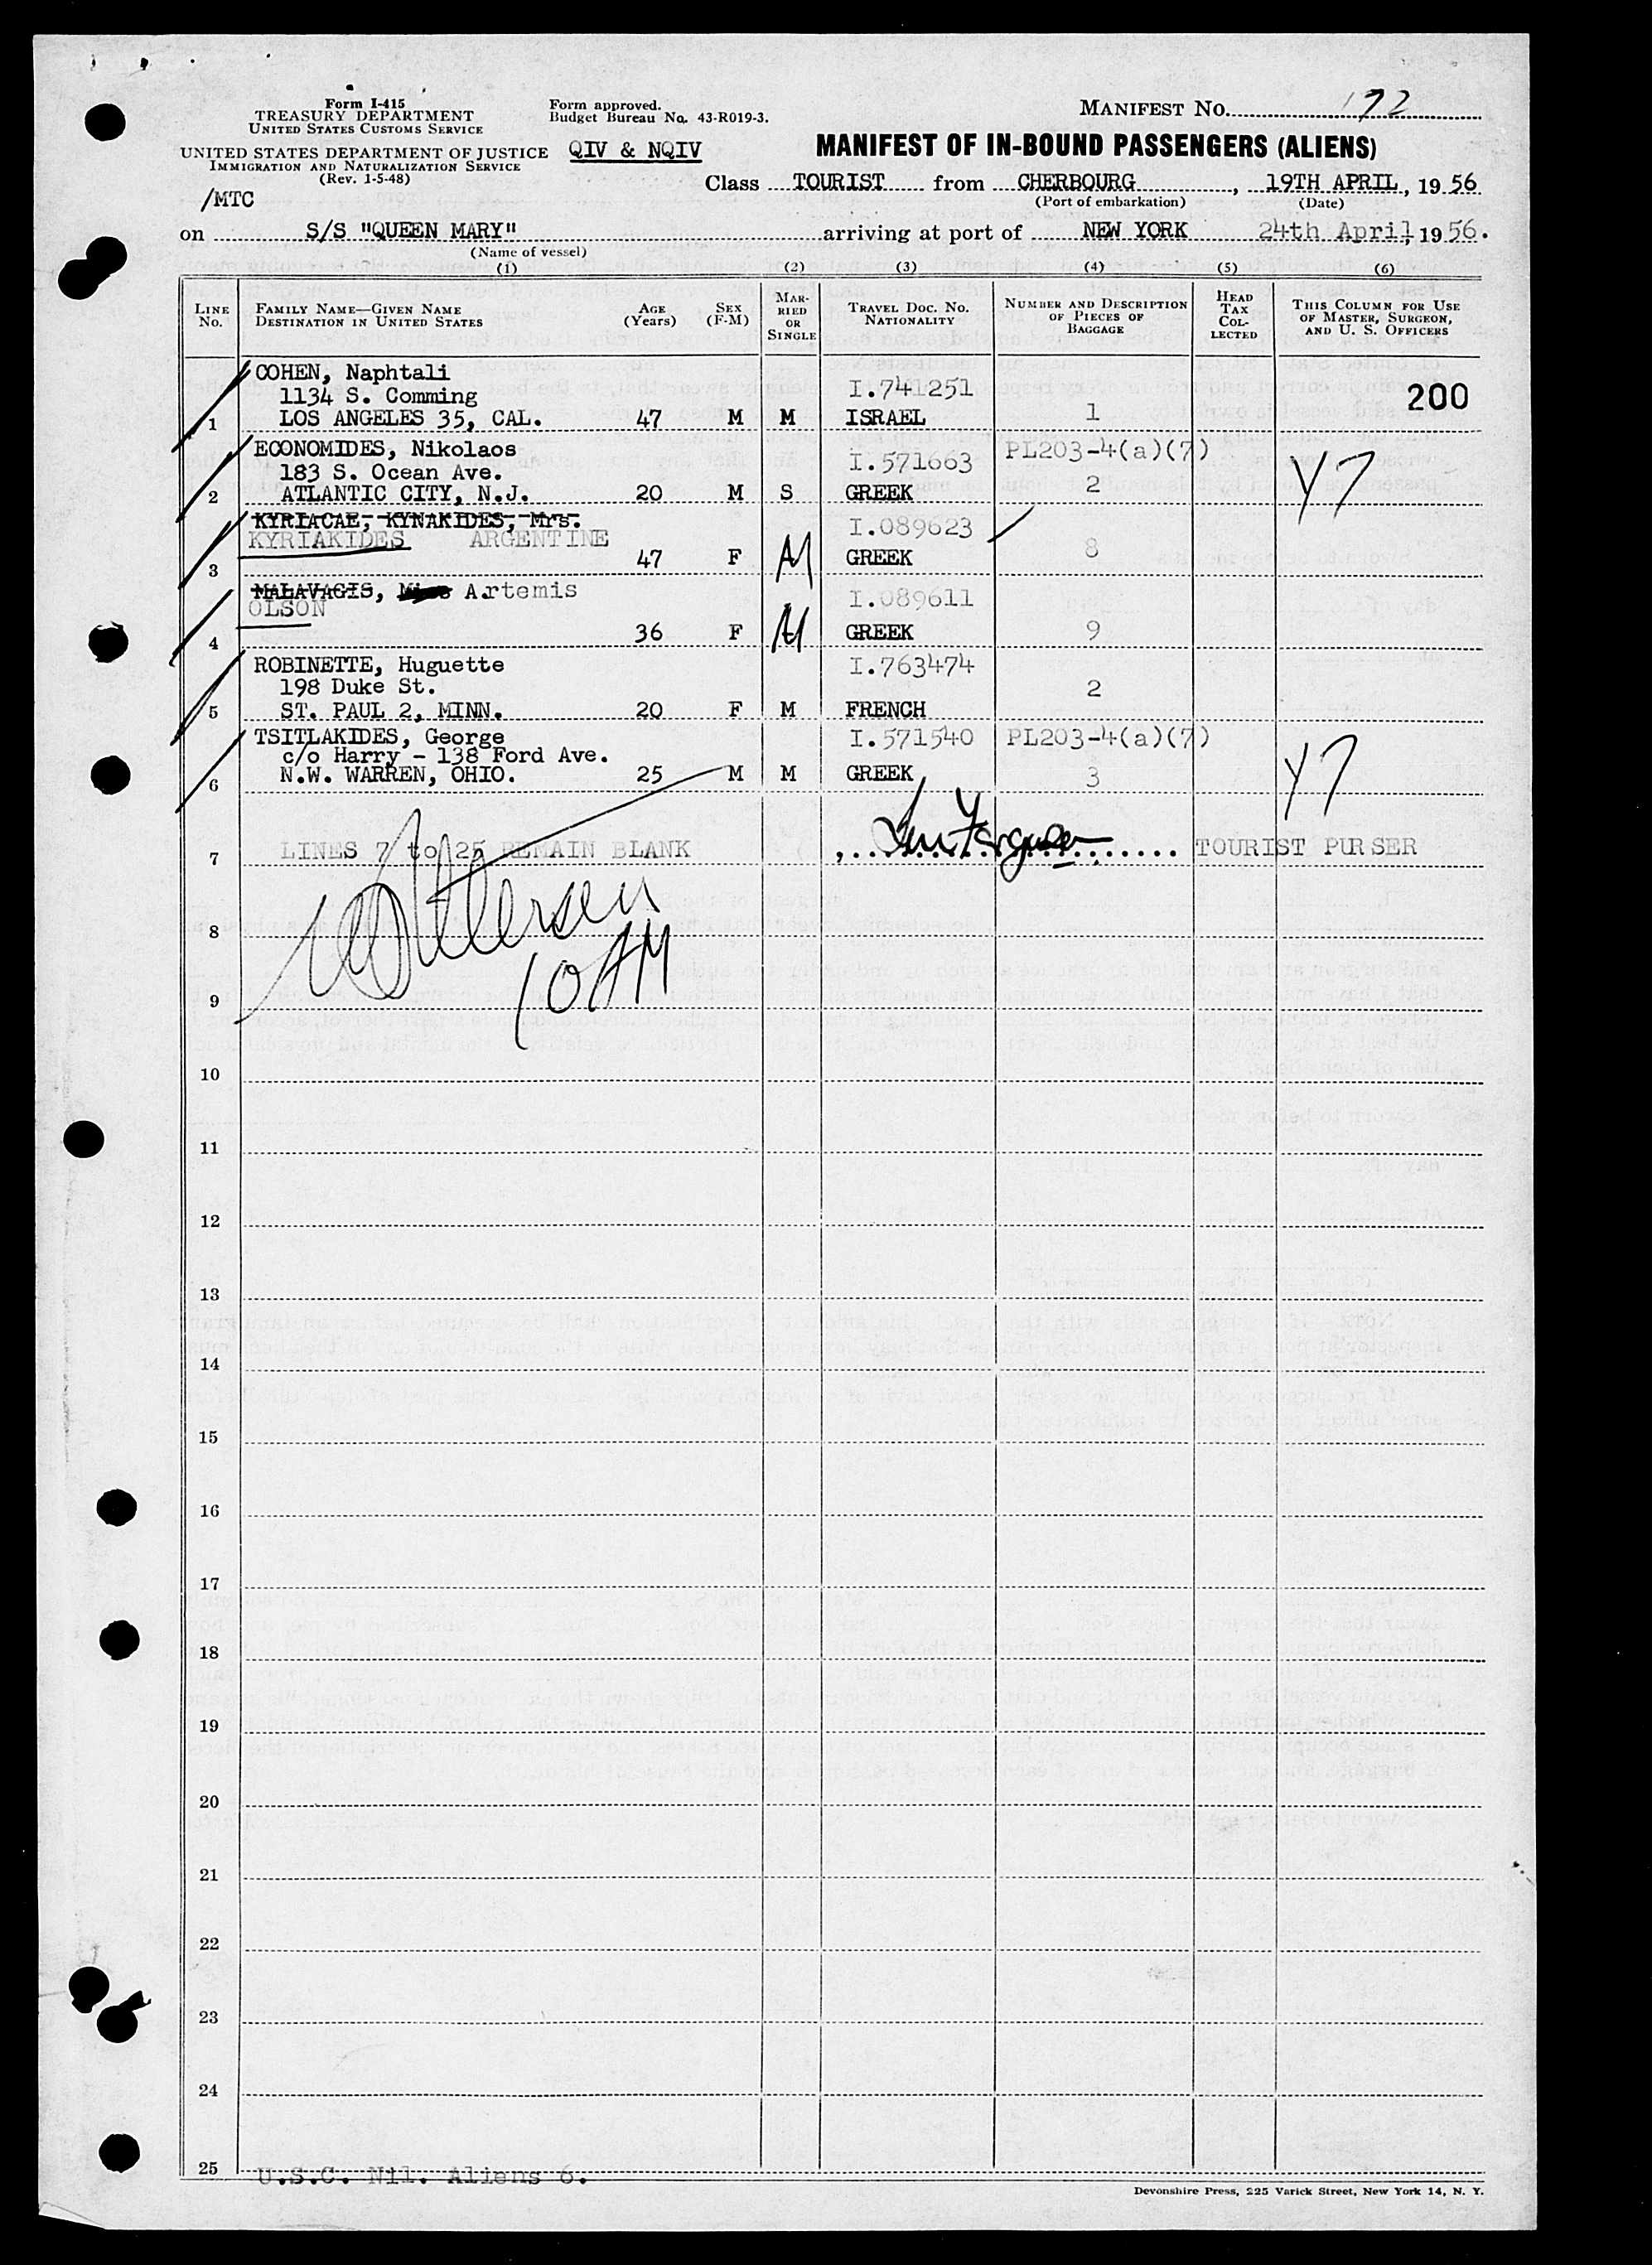 Form I-415
TREASURY DEPARTMENT
UNITED STATES CUSTOMS SERVICE
UNITED STATES DEPARTMENT OF JUSTICE
IMMIGRATION AND NATURALIZATION SERVICE
(Rev. 1-5-48)
/MTC
Form approved.
Budget Bureau No. 43-R019-3.
QIV & NQIV
MANIFEST NO. 172
MANIFEST OF IN-BOUND PASSENGERS (ALIENS)
Class TOURIST from CHERBOURG, 19TH APRIL, 1956
(Port of embarkation) (Date)
on S/S "QUEEN MARY" arriving at port of NEW YORK 24th April, 1956.
(Name of vessel)
(1) (2) (3) (4) (5) (6)
LINE No. FAMILY NAME—GIVEN NAME DESTINATION IN UNITED STATES AGE (Years) SEX (F-M) MARRIED OR SINGLE TRAVEL DOC. NO. NATIONALITY NUMBER AND DESCRIPTION OF PIECES OF BAGGAGE HEAD TAX COLLECTED THIS COLUMN FOR USE OF MASTER, SURGEON, AND U. S. OFFICERS
COHEN, Naphtali I.741251 200
1134 S. Comming
1 LOS ANGELES 35, CAL. 47 M M ISRAEL 1
ECONOMIDES, Nikolaos I.571663 PL203-4(a)(7)
183 S. Ocean Ave. Y7
2 ATLANTIC CITY, N.J. 20 M S GREEK 2
KYRIACAE, KYNAKIDES, Mrs. I.089623
KYRIAKIDES ARGENTINE
3 47 F M GREEK 8
MALAVAGIS, Miss Artemis I.089611
OLSON
4 36 F M GREEK 9
ROBINETTE, Huguette I.763474
198 Duke St. 2
5 ST. PAUL 2, MINN. 20 F M FRENCH
TSITLAKIDES, George I.571540 PL203-4(a)(7)
c/o Harry - 138 Ford Ave. Y7
6 N.W. WARREN, OHIO. 25 M M GREEK 3
7 LINES 7 to 25 REMAIN BLANK Ferguson TOURIST PURSER
8
9 10 AM
10
11
12
13
14
15
16
17
18
19
20
21
22
23
24
25 U.S.C. Nil. Aliens 6.
Devonshire Press, 225 Varick Street, New York 14, N. Y.